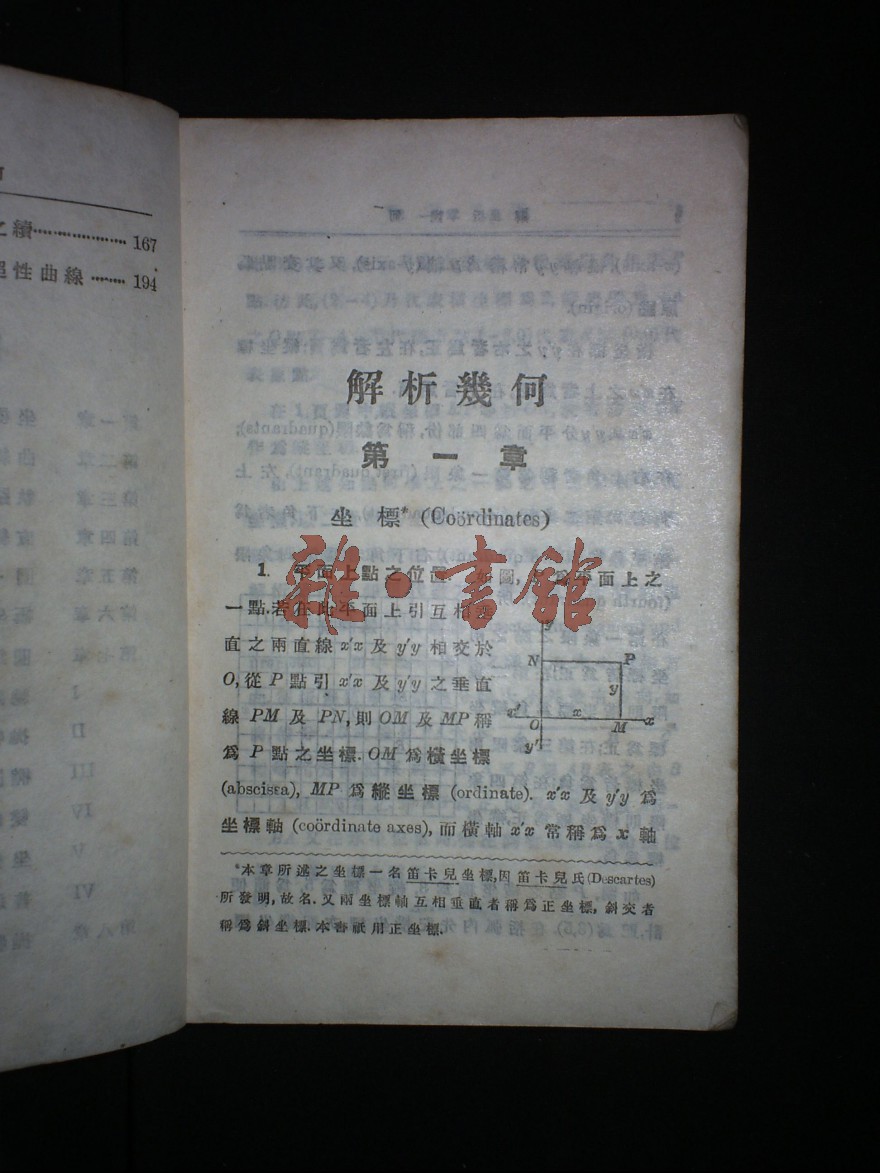 之續 167
性曲線 194
解析幾何
第一章
坐標* (Coördinates)
1. 平面上點之位置. 如圖, P 爲平面上之
一點. 若在此平面上引互相垂
直之兩直線 x′x 及 y′y 相交於
O, 從 P 點引 x′x 及 y′y 之垂直
線 PM 及 PN, 則 OM 及 MP 稱
爲 P 點之坐標. OM 爲橫坐標
(abscissa), MP 爲縱坐標 (ordinate). x′x 及 y′y 爲
坐標軸 (coördinate axes), 而橫軸 x′x 常稱爲 x 軸
y
N P
y
x′ O x M x
y′
*本章所述之坐標一名笛卡兒坐標, 因笛卡兒氏 (Descartes)
所發明, 故名. 又兩坐標軸互相垂直者稱爲正坐標, 斜交者
稱爲斜坐標. 本書祇用正坐標.
雜·書館